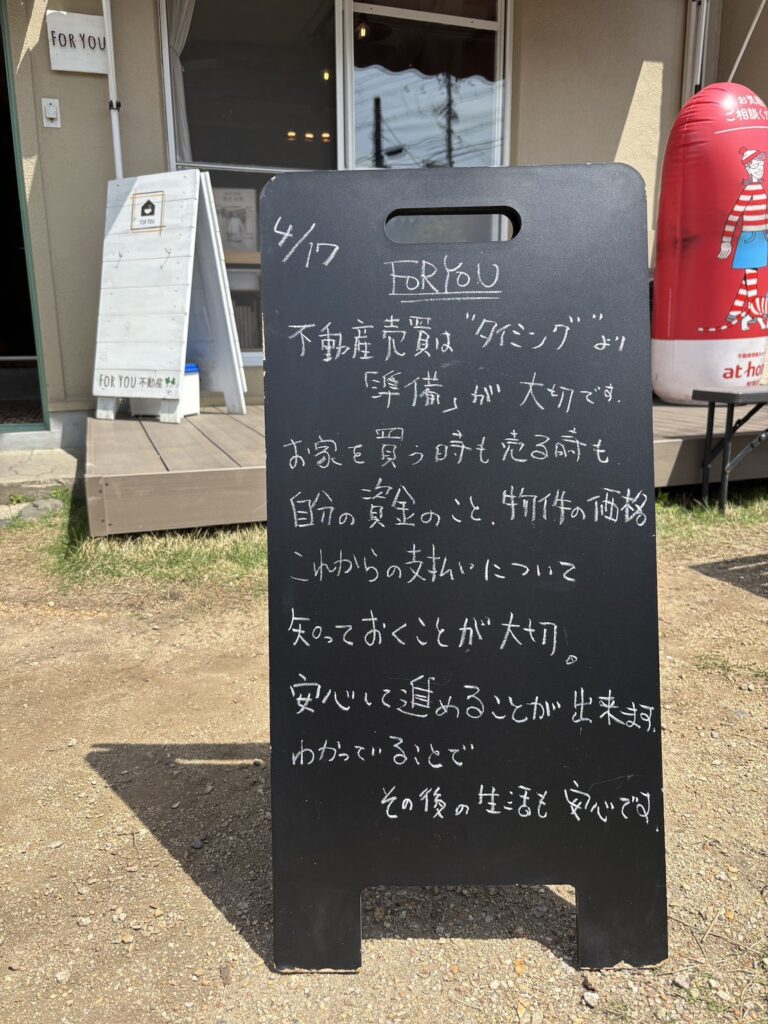 FOR YOU
お気軽
ご相談くだ
FOR YOU
FOR YOU 不動産
at home
4/17
FOR YOU
不動産売買は"タイミング"より
「準備」が大切です.
お家を買う時も売る時も
自分の資金のこと、物件の価格
これからの支払いについて
知っておくことが大切。
安心して進めることが出来ます.
わかっていることで
その後の生活も安心です.